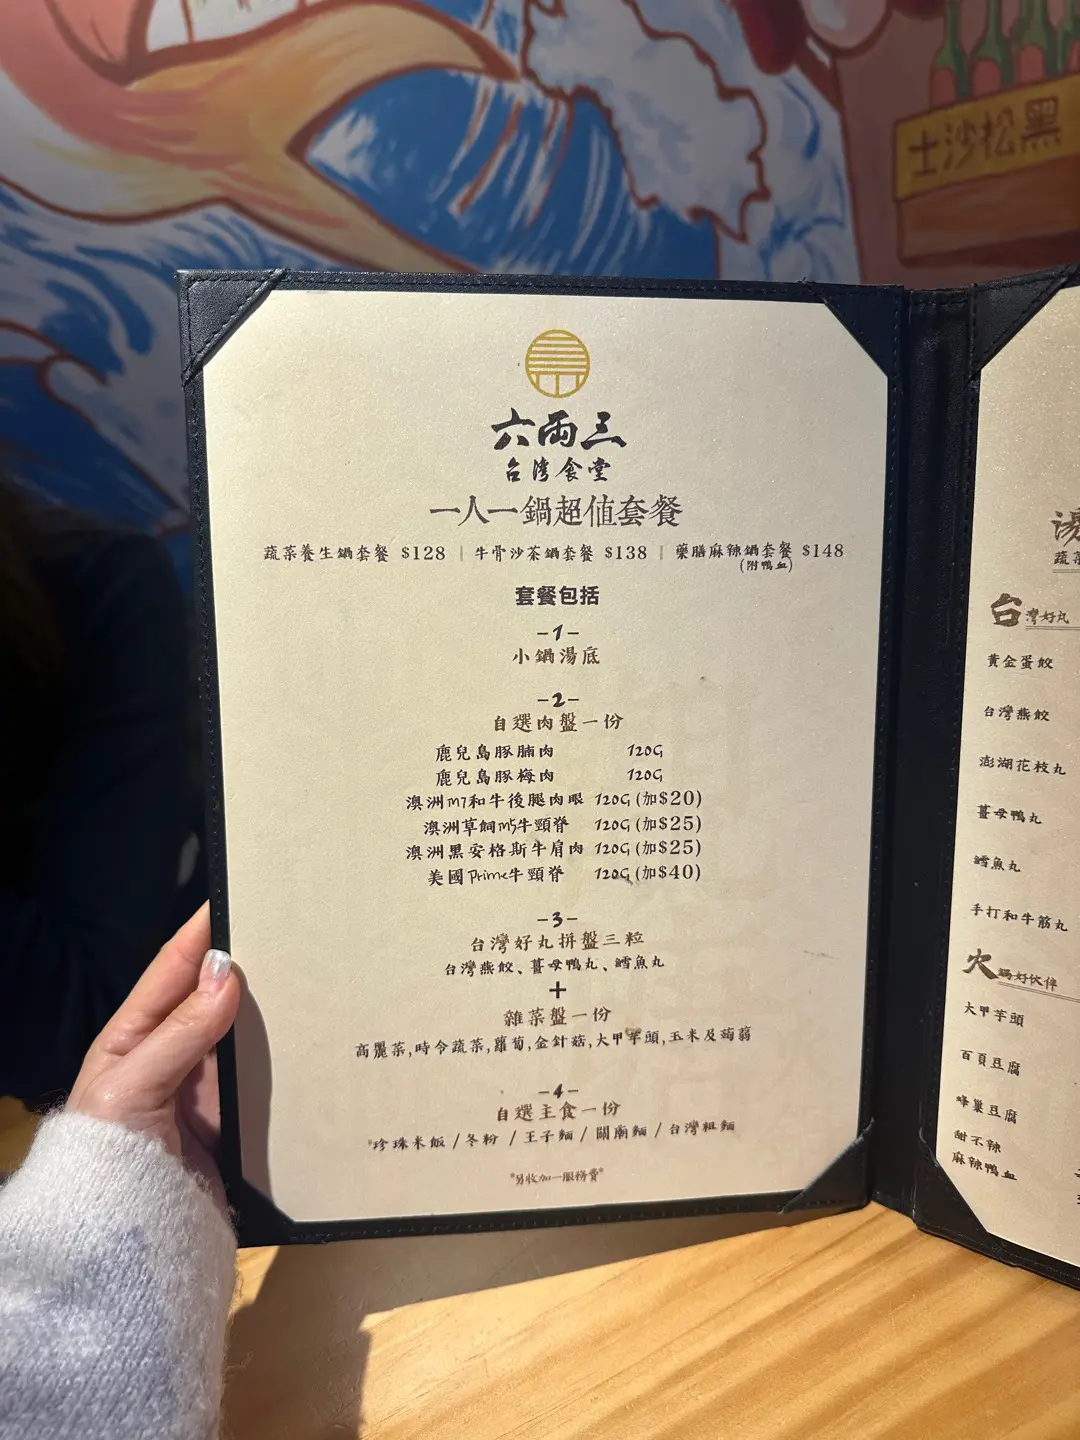 士沙松黑
六兩三
台灣食堂
一人一鍋超值套餐
蔬菜養生鍋套餐 $128 | 牛骨沙茶鍋套餐 $138 | 藥膳麻辣鍋套餐 $148
(附鴨血)
套餐包括
-1-
小鍋湯底
-2-
自選肉盤一份
鹿兒島豚腩肉 120G
鹿兒島豚梅肉 120G
澳洲m7和牛後腿肉眼 120G (加$20)
澳洲草飼m5牛頸脊 120G (加$25)
澳洲黑安格斯牛肩肉 120G (加$25)
美國Prime牛頸脊 120G (加$40)
-3-
台灣好丸拼盤三粒
台灣燕餃、薑母鴨丸、鱈魚丸
+
雜菜盤一份
高麗菜,時令蔬菜,蘿蔔,金針菇,大甲芋頭,玉米及蒟蒻
-4-
自選主食一份
*珍珠米飯 / 冬粉 / 王子麵 / 關廟麵 / 台灣粗麵
*另收加一服務費*
湯
蔬菜
台灣好丸
黃金蛋餃
台灣燕餃
澎湖花枝丸
薑母鴨丸
鱈魚丸
手打和牛筋丸
火鍋好伙伴
大甲芋頭
百頁豆腐
蜂巢豆腐
甜不辣
麻辣鴨血